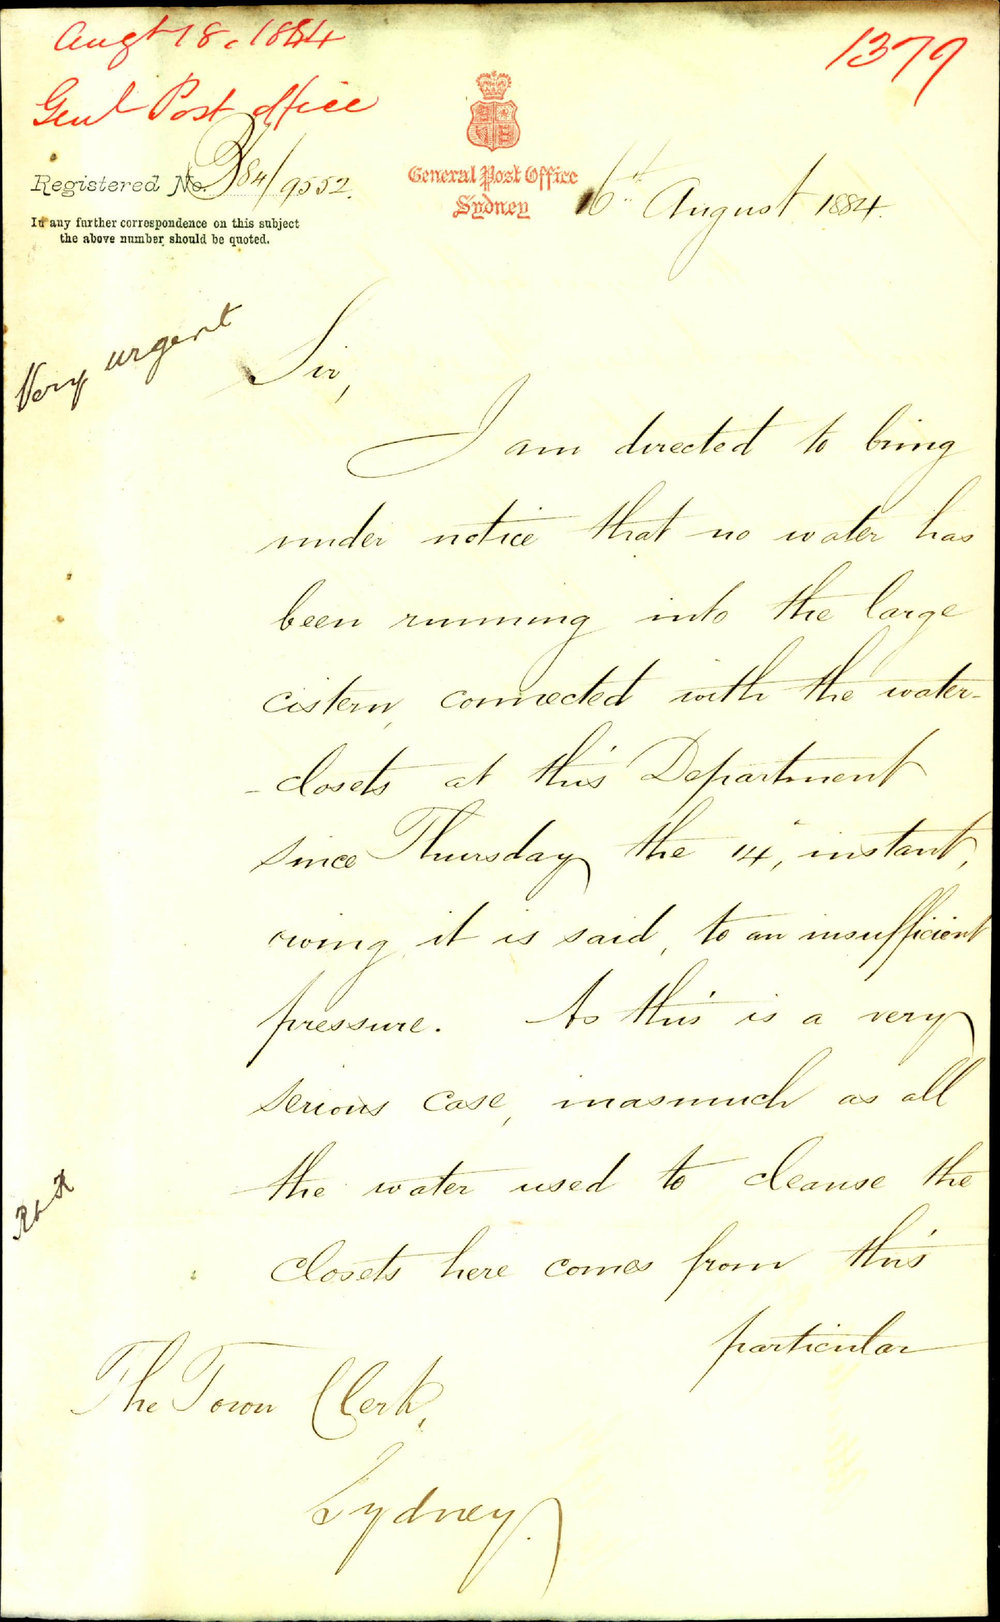 Augt 18. 1884
Genl Post office
1379
General Post Office
Sydney
Registered No. 84/9552.
In any further correspondence on this subject
the above number should be quoted.
16th August 1884.
Very urgent
Sir,
I am directed to bring
under notice that no water has
been running into the large
cistern, connected with the water-
-closets at this Department
since Thursday the 14", instant,
owing, it is said, to an insufficient
pressure. As this is a very
serious case, inasmuch as all
the water used to cleanse the
closets here comes from this
particular
The Town Clerk,
Sydney.